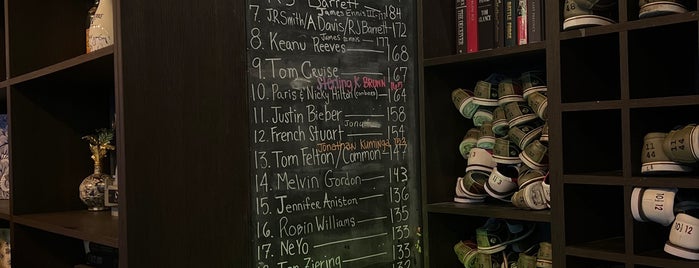 Barrett
James Ennis III 184
7. JR Smith/A Davis/RJ Barrett 172
James Ennis
8. Keanu Reeves 168
9. Tom Cruise 167
Sterling K BROWN
10. Paris & Nicky Hilton (combined) 164
11. Justin Bieber 158
12. French Stuart 154
Jonathan Kuminga 152
13. Tom Felton/Common 147
14. Melvin Gordon 143
15. Jennifer Aniston 136
16. Robin Williams 135
17. NeYo 133
Ian Ziering 133
132
11
44
11
44
10 12
10 12
13